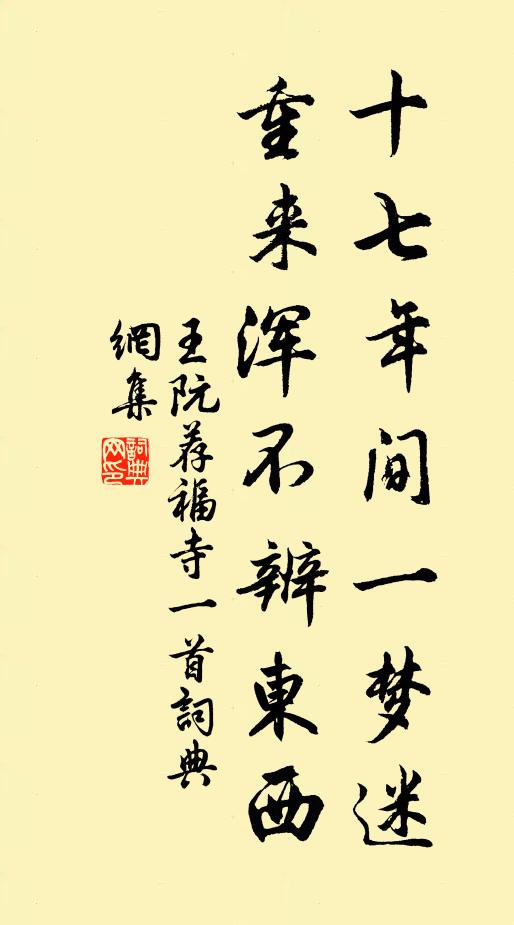 十七年间一梦迷
重来浑不辨東西
王阮荐福寺一首詞典
網集
詞典網印